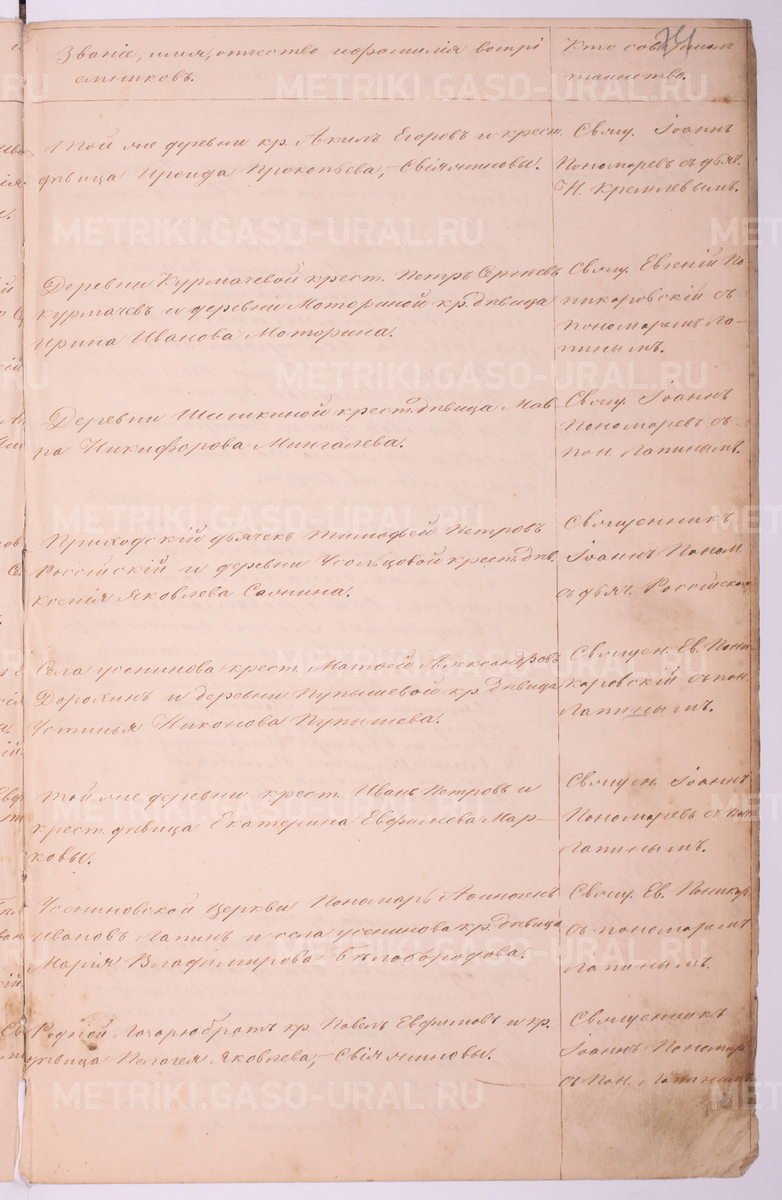 74
Званіе, имя, отчество и фамилія воспрі
емниковъ.
Кто совершалъ
таинство.
Той же деревни кр. Акилъ Егоровъ и крест.
дѣвица Ираида Прокопьева,
Свящ. Іоаннъ
Пономаревъ съ дьяч.
Н. Кремлевымъ.
Деревни Курмачевой крест. Петръ Сергѣевъ
Курмачевъ и деревни Моториной кр. дѣвица
Ирина Иванова Моторина.
Свящ. Евгеній По
никаровскій съ
Пономаремъ Ла-
пинымъ.
Деревни Шишкиной крест. дѣвица Мав-
ра Никифорова Мингалева.
Свящ. Іоаннъ
Пономаревъ съ
пон. Лапинымъ.
Приходскій дьячекъ Тимофей Петровъ
и деревни Усольцовой крест. дѣв.
Ксенія Яковлева
Священникъ
Іоаннъ Поном.
съ дьяч.
Села Усенинова крест. Матѳей Александровъ
Дорохинъ и деревни Пупышевой кр. дѣвица
Устинья Никонова Пупышева.
Священ. Ев. Пони
каровскій съ пон.
Лапинымъ.
Той же деревни крест. Иванъ Петровъ и
крест. дѣвица Екатерина Евфимова Мар-
ковы.
Священ. Іоаннъ
Пономаревъ съ пон.
Лапинымъ.
Усениновской церкви Пономарь
Ивановъ Лапинъ и села Усенинова кр. дѣвица
Марія Владимирова Бѣлобородова.
Свящ. Ев. Поникар.
съ пономаремъ
Лапинымъ.
Родной братъ кр. Павелъ Евфимовъ и кр.
дѣвица Пелагея Яковлева,
Священникъ
Іоаннъ Пономар.
съ пон. Лапинымъ
METRIKI.GASO-URAL.RU